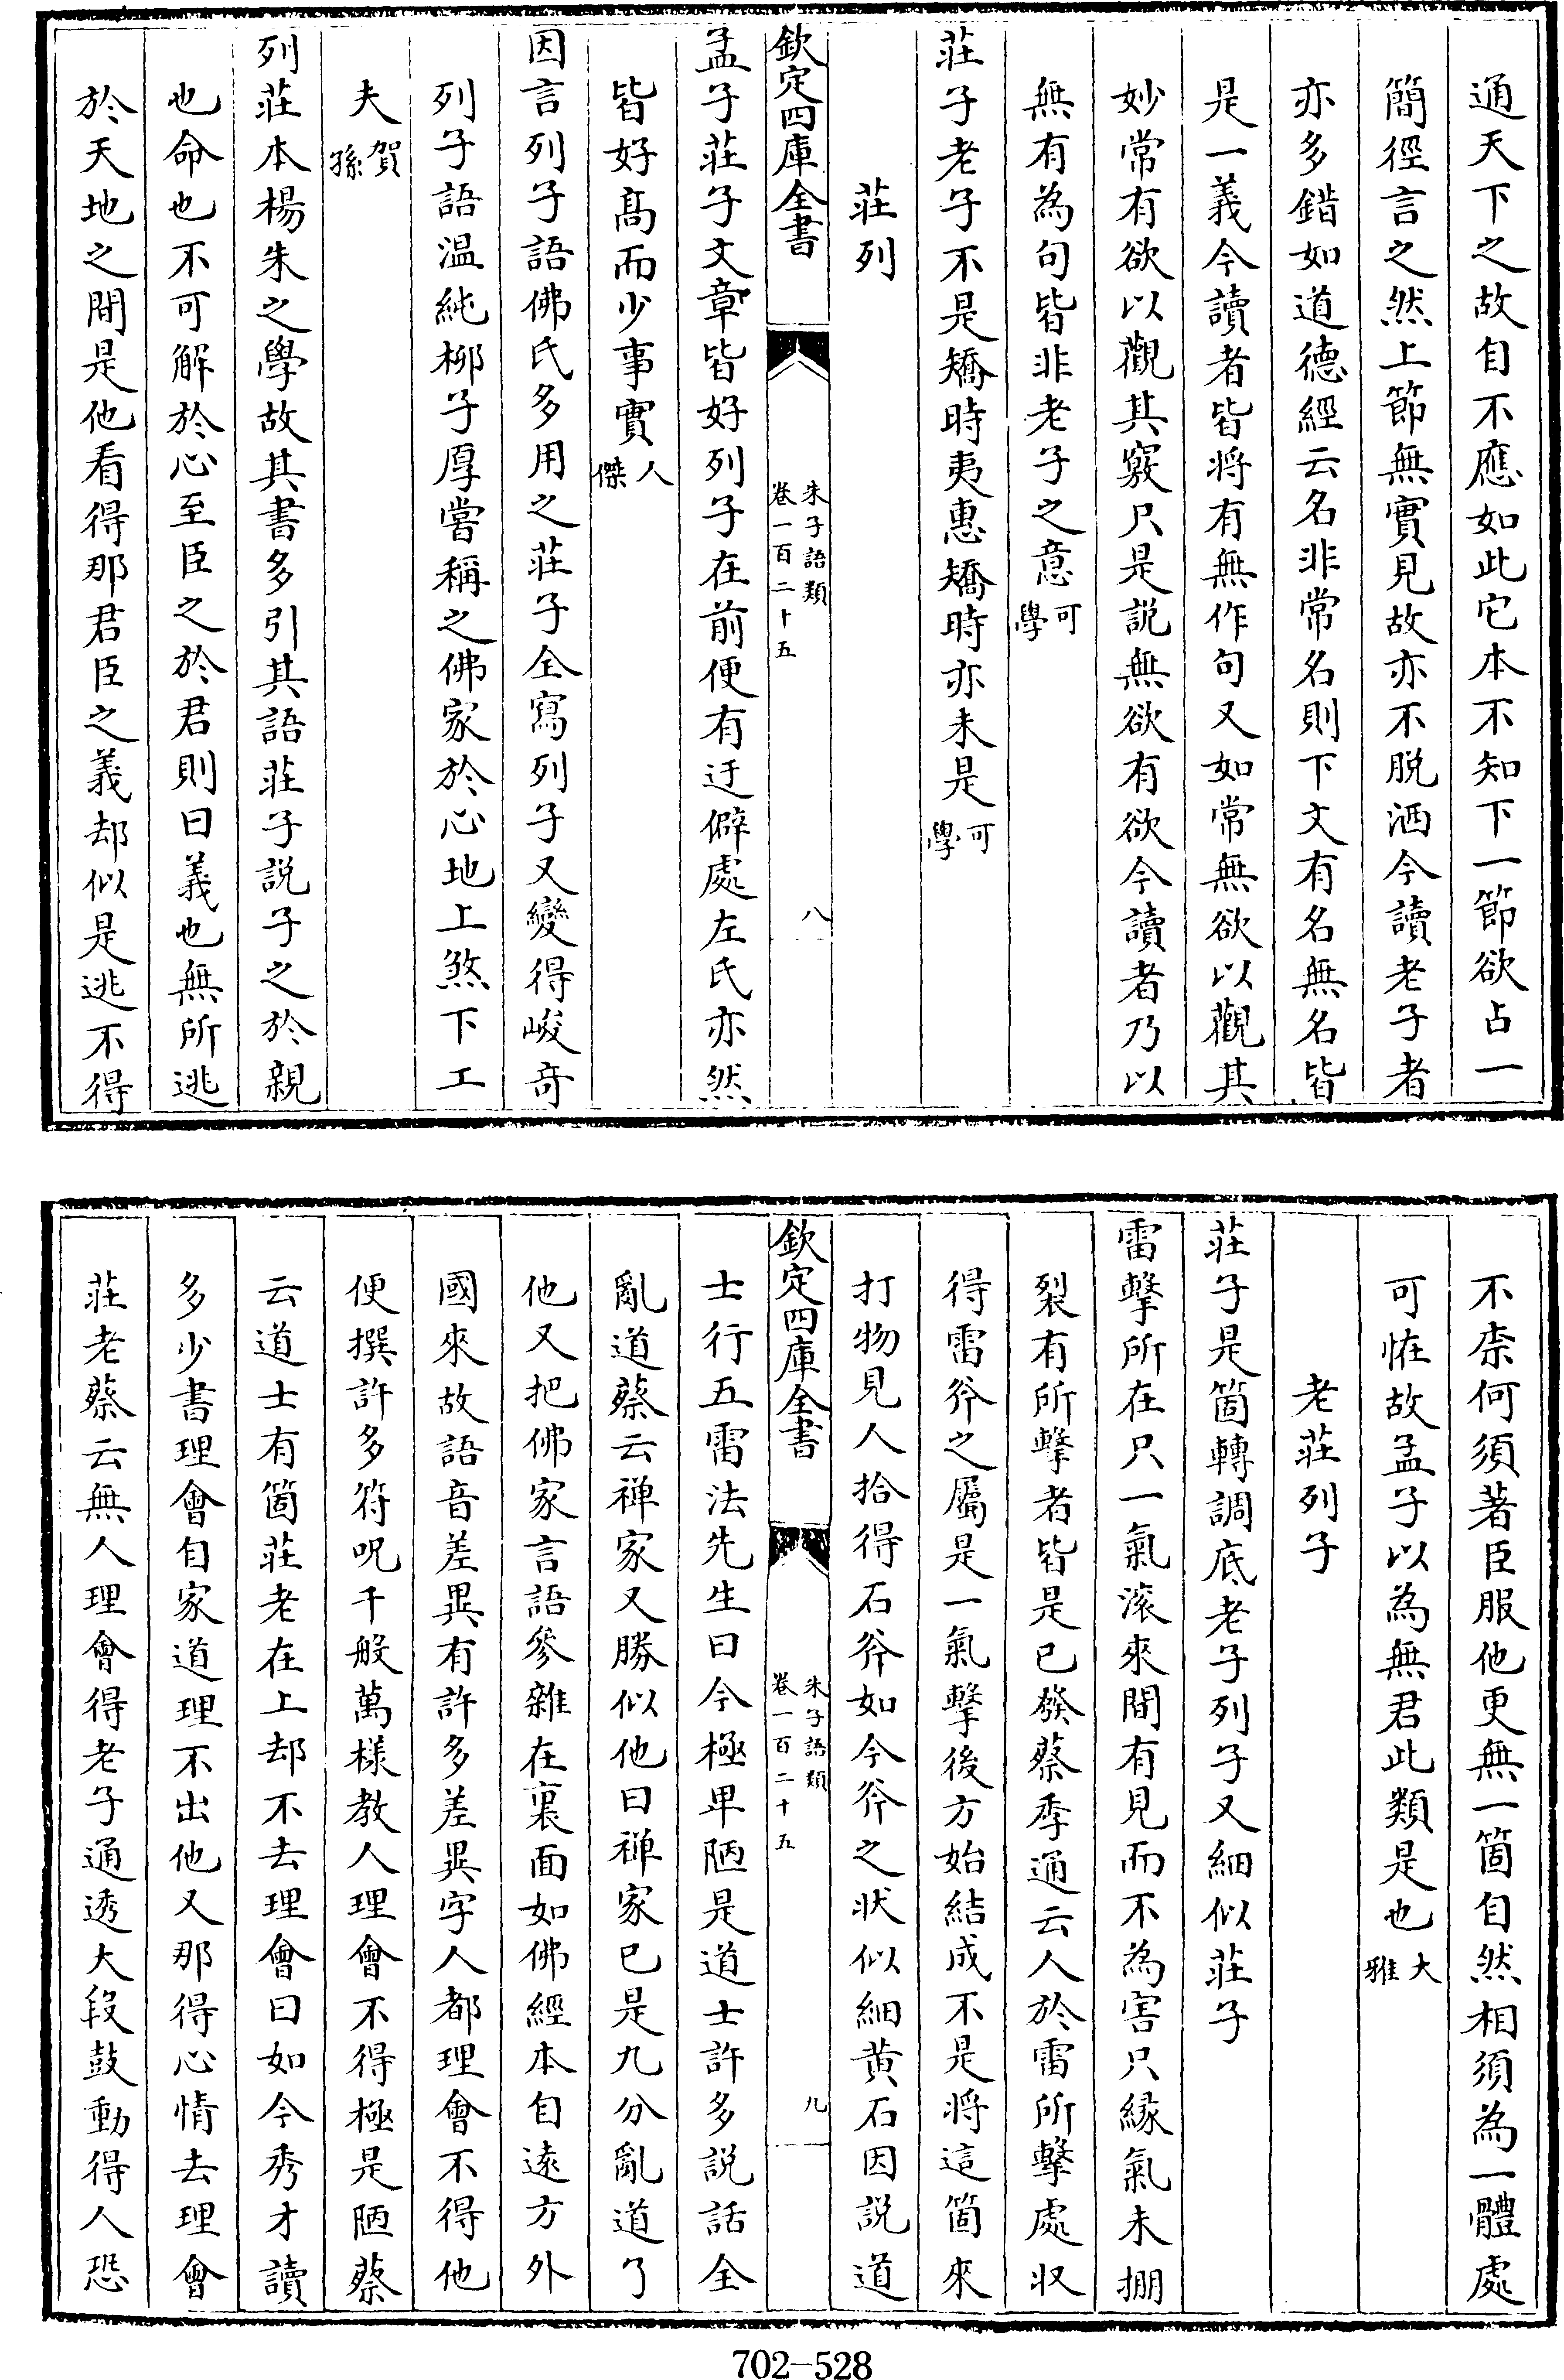 通天下之故自不應如此它本不知下一節欲占一
簡徑言之然上節無實見故亦不脫洒今讀老子者
亦多錯如道德經云名非常名則下文有名無名皆
是一義今讀者皆將有無作句又如常無欲以觀其
妙常有欲以觀其竅只是說無欲有欲今讀者乃以
無有為句皆非老子之意可學
莊子老子不是矯時夷惠矯時亦未是可學
莊列
欽定四庫全書
朱子語類
卷一百二十五
八
孟子莊子文章皆好列子在前便有迂僻處左氏亦然
皆好高而少事實人傑
因言列子語佛氏多用之莊子全寫列子又變得峻奇
列子語温純柳子厚嘗稱之佛家於心地上煞下工
夫賀孫
列莊本楊朱之學故其書多引其語莊子說子之於親
也命也不可解於心至臣之於君則曰義也無所逃
於天地之間是他看得那君臣之義却似是逃不得
不柰何須著臣服他更無一箇自然相須為一體處
可恠故孟子以為無君此類是也大雅
老莊列子
莊子是箇轉調底老子列子又細似莊子
雷擊所在只一氣滚來間有見而不為害只緣氣未掤
裂有所擊者皆是已發蔡季通云人於雷所擊處収
得雷斧之屬是一氣擊後方始結成不是將這箇來
打物見人拾得石斧如今斧之狀似細黄石因說道
欽定四庫全書
朱子語類
卷一百二十五
九
士行五雷法先生曰今極卑陋是道士許多說話全
亂道蔡云禅家又勝似他曰禅家已是九分亂道了
他又把佛家言語參雜在裏面如佛經本自逺方外
國來故語音差異有許多差異字人都理會不得他
便撰許多符呪千般萬樣教人理會不得極是陋蔡
云道士有箇莊老在上却不去理會曰如今秀才讀
多少書理會自家道理不出他又那得心情去理會
莊老蔡云無人理會得老子通透大段鼓動得人恐
702-528